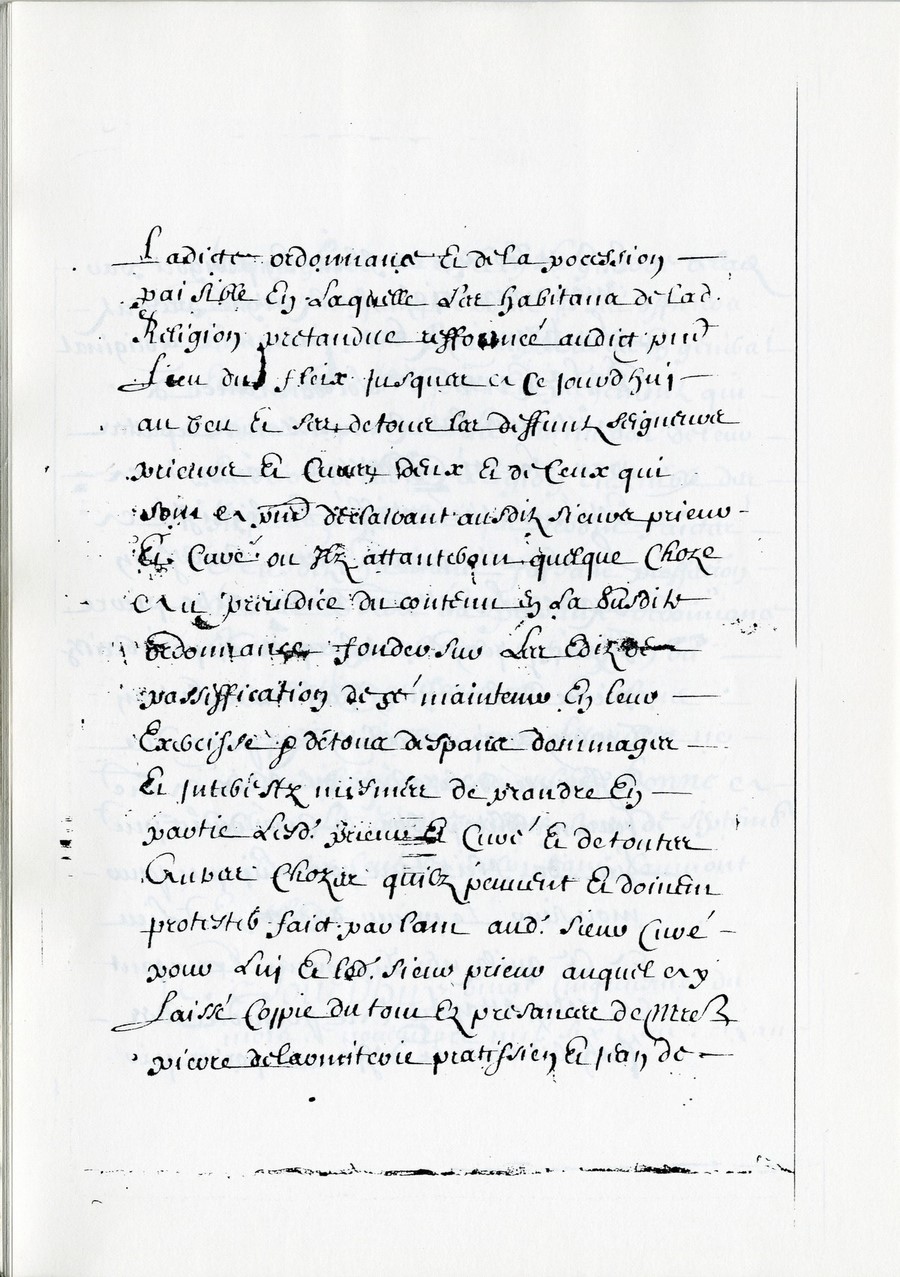 Ladicte ordonnance et de la pocession
paisible en laquelle les habitans de lad.
Religion pretandue refformée audict pnt
Lieu du fleix jusques a ce jourdhui
au veu et sceu de tous les deffuntz seigneurs
prieurs et Curés deux et de Ceux qui
sont a pnt declairant ausditz sieurs prieur
et Curé ou Ilz attanteroint quelque Choze
au preiudice du contenu en la susdite
ordonnance fondee sur Les Editz de
passiffication de se maintenir en leur
Exercisse & de tous despans dommages
et Interestz mesmes de prandre En
partie Lesd. prieur et Curé et de toutes
Autres Chozes quilz peuvent et doivent
protester faict parlant aud. sieur Curé
pour Lui et led. sieur prieur auquel ay
Laissé Coppie du tout Ez presances de Mres
pierre pratissien et jean de